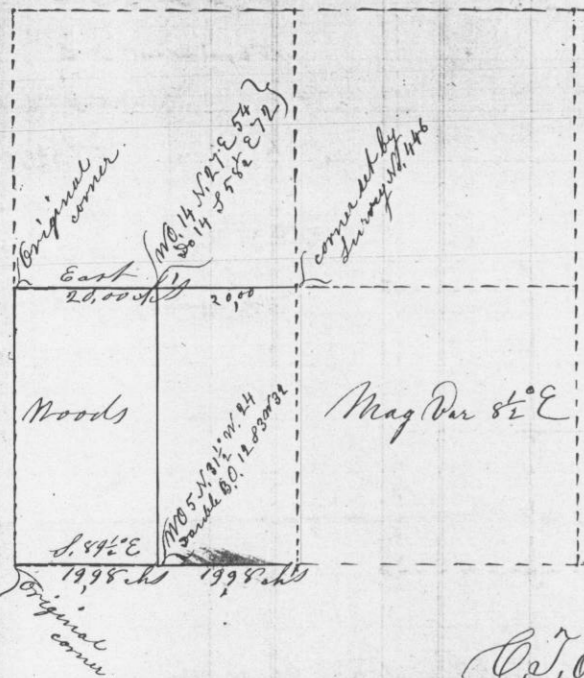 Original
corner
W.O. 14 N. 27 E 54
Do 14 S 58½ E 72
corner set by
Survey No. 446
East
20,00 chs
20,00
Woods
Mag Var 8½° E
W.O 5 N. 31½° W. 24
Double B.O. 12 S 3 W 32
S. 89½° E
19,98 chs
19,98 chs
Original
corner